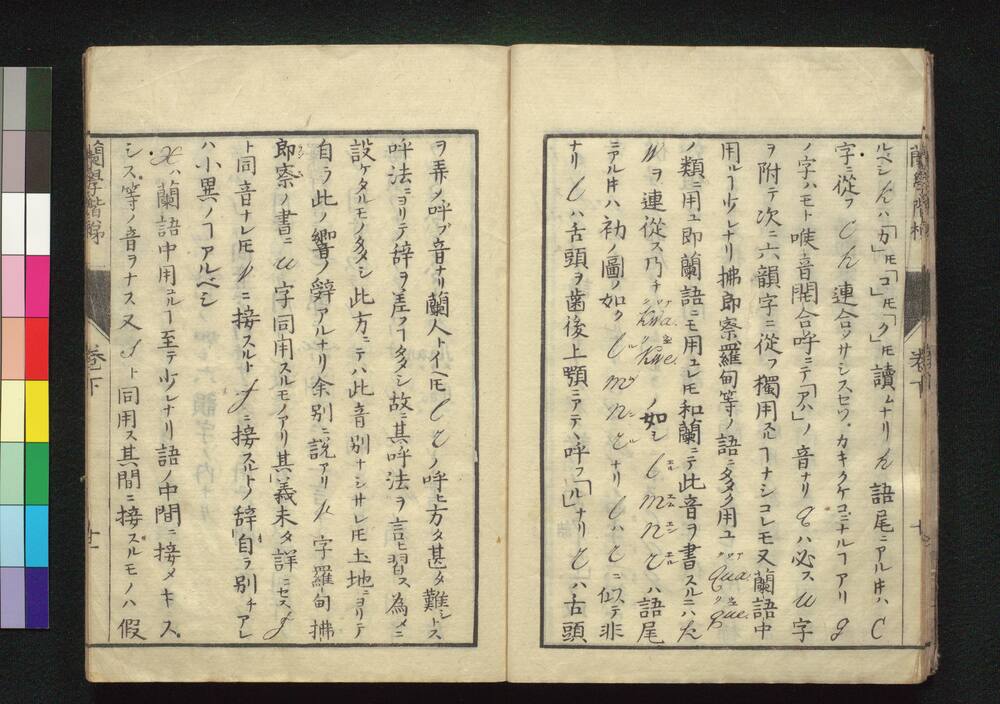 ルベシ h ハ「カ」𪜈「コ」𪜈「ク」𪜈讀ムナリ h 語尾ニアル𪜈ハ C
字ニ從フ C h 連合メサシスセワ。カキクケコニトルヿアリ g
ノ字ハモト喉音開合呼ニテ「アハ」ノ音ナリ q ハ必ス u 字
ヲ附テ次ニ六韻字ニ從フ獨用スルヿナシコレモ又蘭語中
用ルヿ少シナリ拂郎察羅甸等ノ語ニ多ク用ユ qua. que.
ノ類ニ用ユ即蘭語ニモ用ユレ𪜈和蘭ニテ此音ヲ書スルニハ k
W ヲ連從ス乃チ kwa. kwe. ノ如シ l m n r ハ語尾
ニアル𪜈ハ初ノ圖ノ如ク l m n r ナリ l ハ r ニ似テ非
ナリ l ハ舌頭ヲ齒後上顎ニアテヽ呼フ「ル」ナリ r ハ舌頭
蘭學階梯
卷下
ヲ弄メ呼ブ音ナリ蘭人トイヘ𪜈 l r ノ呼ヒ方タ甚タ難シトス
呼法ニヨリテ辞ヲ差フヿ多シ故ニ其呼法ヲ言ヒ習ス為メニ
設ケタルモノ多シ此方ニテハ此音別ナシサレ𪜈土地ニヨリテ
自ラ此ノ響ノ辟アルナリ余別ニ説アリ k 字羅甸拂
郎察ノ書ニ u 字同用スルモノアリ其義未タ詳ニセス f
ト同音ナレ𪜈 v ニ接スルト f ニ接スルトノ辞自ラ別チアレ
ハ小異ノヿアルベシ
X ハ蘭語中用ユルヿ至テ少シナリ語ノ中間ニ接メキス。
シス。等ノ音ヲナス又 s ト同用ス其間ニ接スルモノハ假
蘭學階梯
卷下